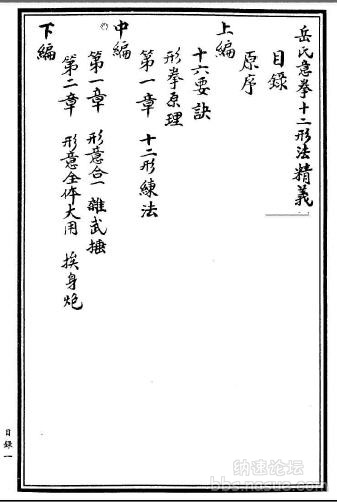 岳氏意拳十二形法精義
目錄
原序
上編
十六要訣
形拳原理
第一章 十二形練法
中編
第一章 形意合一 雜武捶
第二章 形意全体大用 挨身炮
下編
目錄一
纳速论坛
bbs.nasue.com